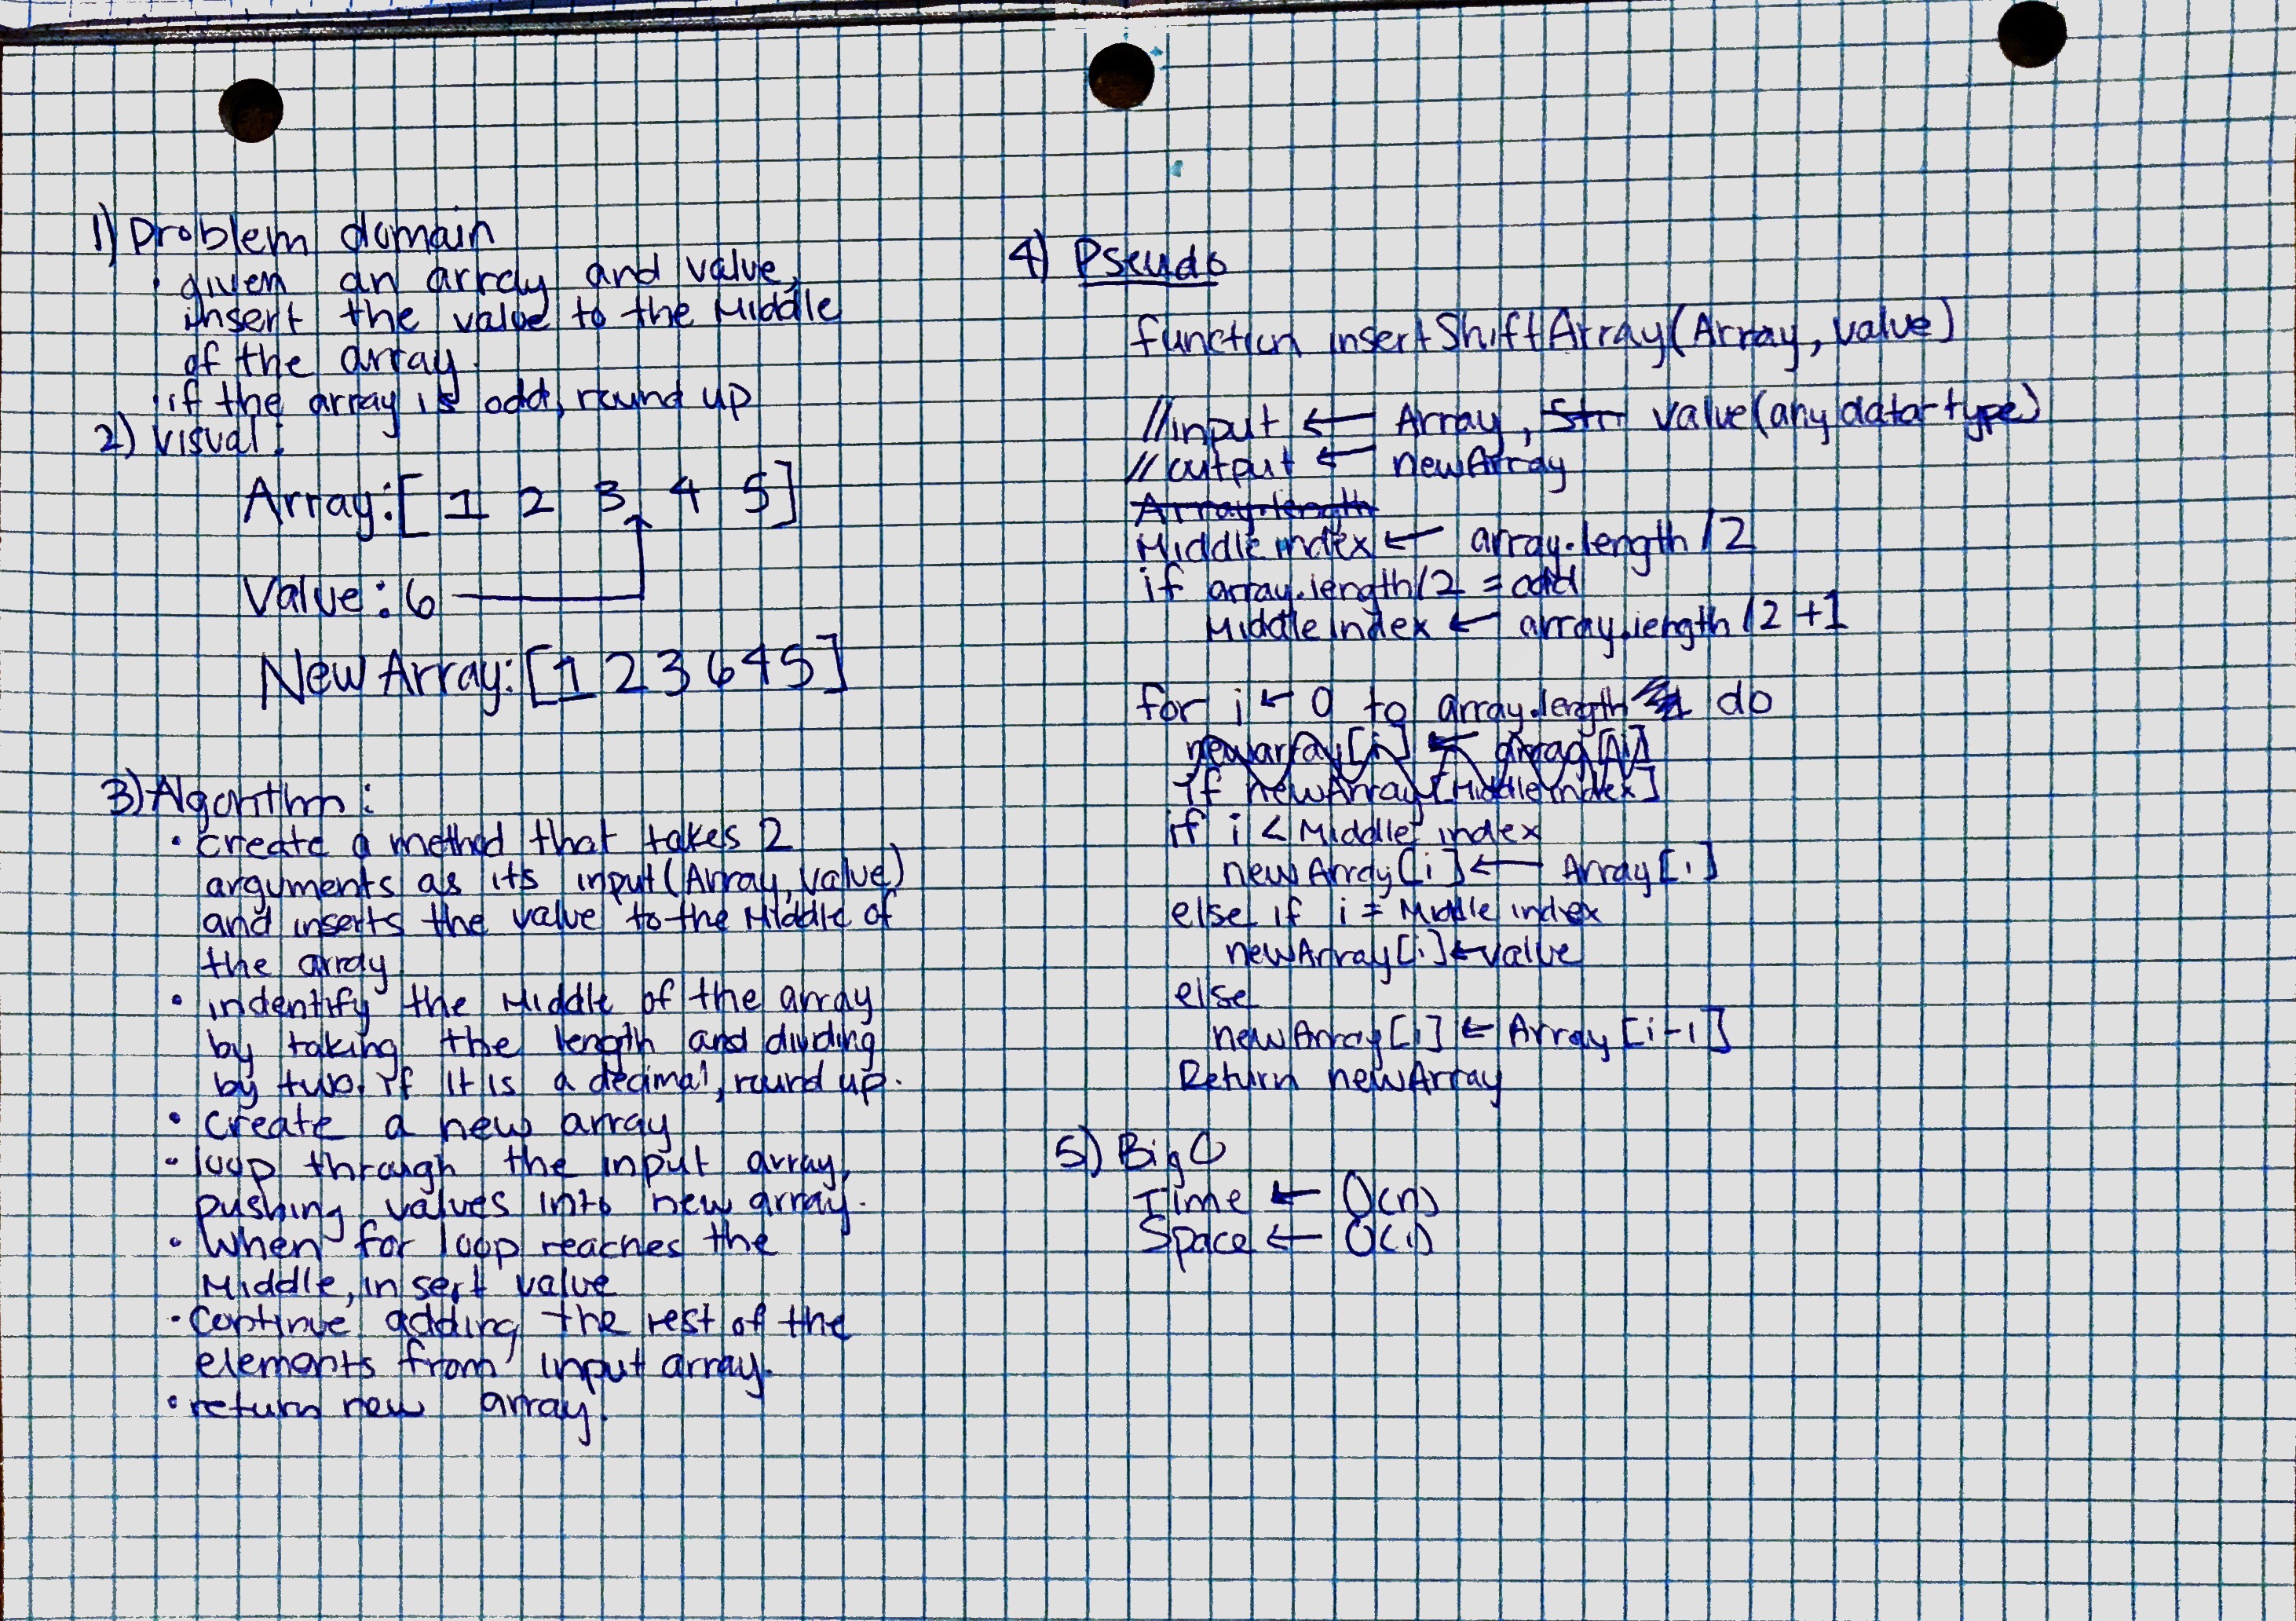 1) Problem domain
· given an array and value,
insert the value to the Middle
of the array.
· if the array is odd, round up
2) Visual:
Array: [ 1 2 3 4 5 ]
Value: 6
New Array: [1 2 3 6 4 5]
3) Algorithm:
· create a method that takes 2
arguments as its input (Array, value)
and inserts the value to the Middle of
the array
· indentify the Middle of the array
by taking the length and dividing
by two. if it is a decimal, round up.
· create a new array
· loop through the input array,
pushing values into new array.
· When for loop reaches the
Middle, insert value
· continue adding the rest of the
elements from input array.
· return new array.
4) Pseudo
function insertShiftArray(Array, value)
//input ← Array, Str value (any data-type)
//output ← newArray
Array.length
Middle index ← array.length /2
if array.length/2 = odd
Middle Index ← array.length /2 +1
for i ← 0 to array.length do
newarray[i] ← array[i]
if newArray[MiddleIndex]
if i < Middle index
newArray[i] ← Array[i]
else if i = Middle index
newArray[i] ← value
else
newArray[i] ← Array[i-1]
Return newArray
5) Big O
Time ← O(n)
Space ← O(1)